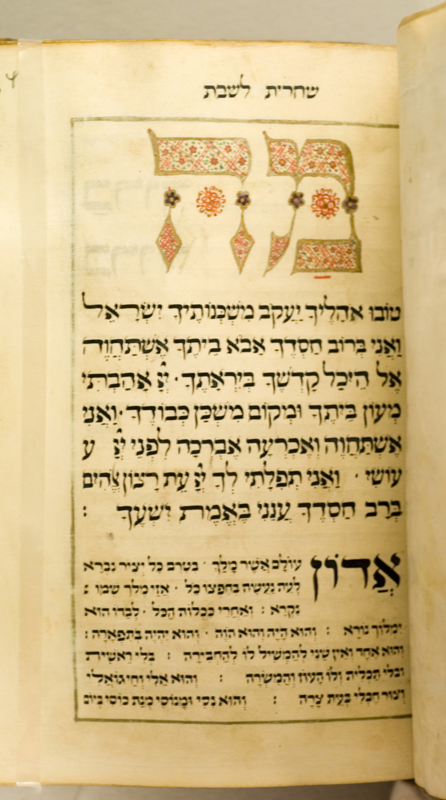 שחרית לשבת
מה
טובו אהליך יעקב משכנותיך ישראל
ואני ברוב חסדך אבא ביתך אשתחוה
אל היכל קדשך ביראתך · יי אהבתי
מעון ביתך ומקום משכן כבודך · ואני
אשתחוה ואכרעה אברכה לפני יי ע
עושי · ואני תפלתי לך יי עת רצון
ברב חסדך ענני באמת ישעך :
אדון עולם אשר מלך · בטרם כל יציר נברא
לעת נעשה בחפצו כל · אזי מלך שמו
נקרא : ואחרי ככלות הכל · לבדו הוא
ימלוך נורא : והוא היה והוא הוה · והוא יהיה בתפארה :
והוא אחד ואין שני להמשיל לו להחבירה : בלי ראשית
ובלי תכלית ולו העוז והמשרה : והוא אלי וחי גואלי
וצור חבלי בעת צרה : והוא נסי ומנוסי מנת כוסי ביום